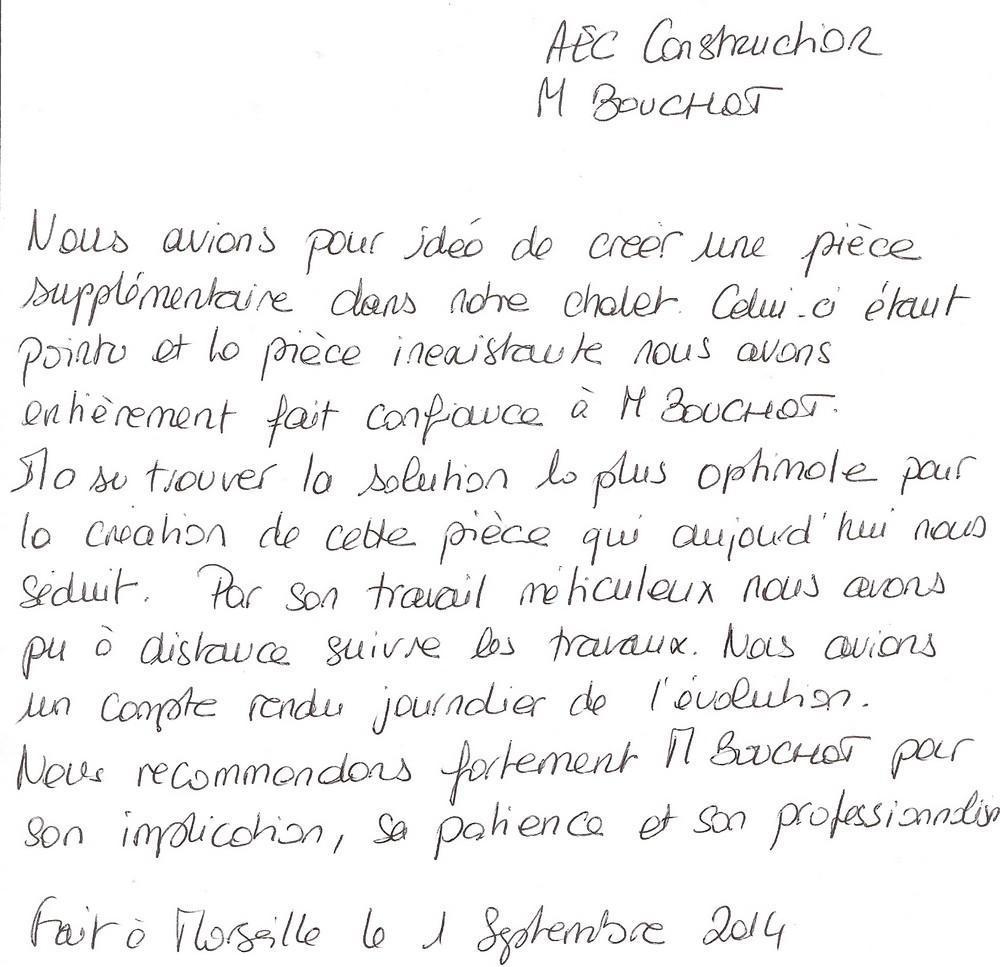 AEC Construction
M BOUCHOT
Nous avions pour idée de creér une pièce
supplémentaire dans notre chalet. Celui-ci étant
pointu et la pièce inexistante nous avons
entièrement fait confiance à M BOUCHOT.
Il a su trouver la solution la plus optimale pour
la création de cette pièce qui aujourd'hui nous
séduit. Par son travail méticuleux nous avons
pu à distance suivre les travaux. Nous avions
un compte rendu journalier de l'évolution.
Nous recommandons fortement M BOUCHOT pour
son implication, sa patience et son professionnalism
Fait à Marseille le 1 Septembre 2014